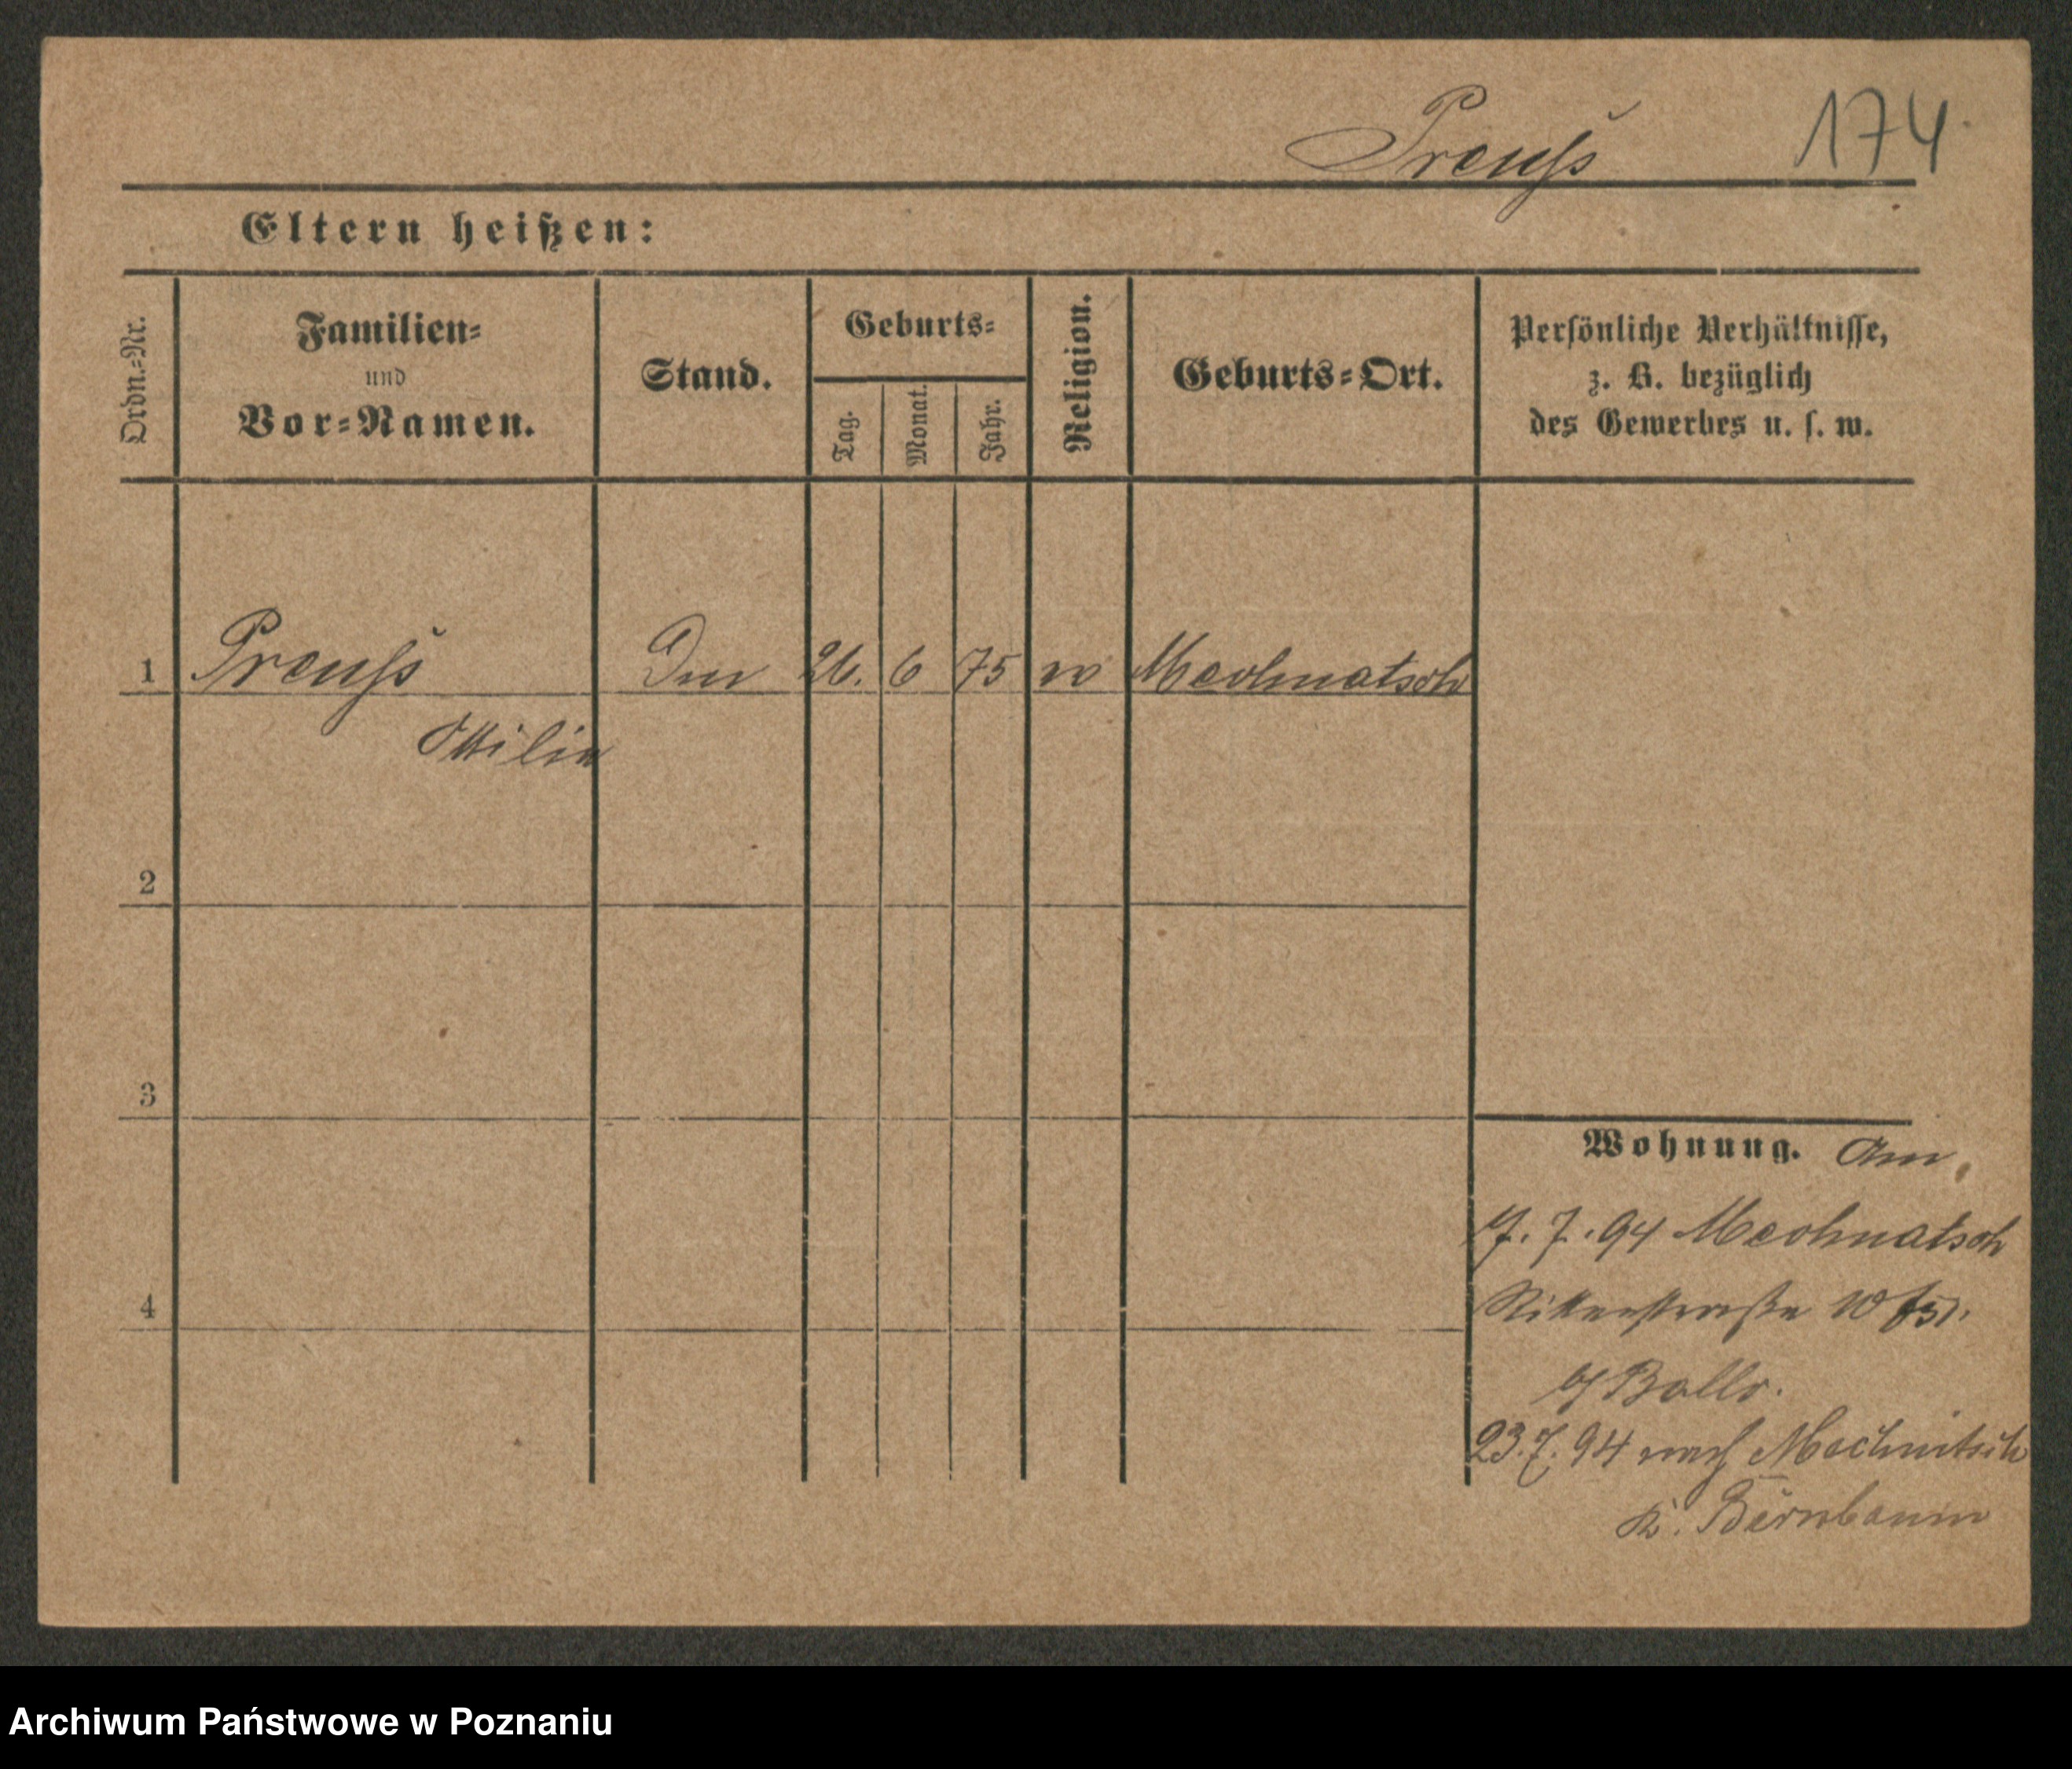 Preuß 174
Eltern heißen:
Ordn.-Nr.
Familien-
und
Vor-Namen.
Stand.
Geburts-
Tag.
Monat.
Jahr.
Religion.
Geburts-Ort.
Persönliche Verhältnisse,
z. B. bezüglich
des Gewerbes u. s. w.
1 Preuß 26. 6 75 Mechnatsch
Ottilie
2
3
4
Wohnung. Am
7. 94 Mechnatsch
Ritterstraße 10
b/
23.7.94 nach Mechnitsch
K. Birnbaum
Archiwum Państwowe w Poznaniu